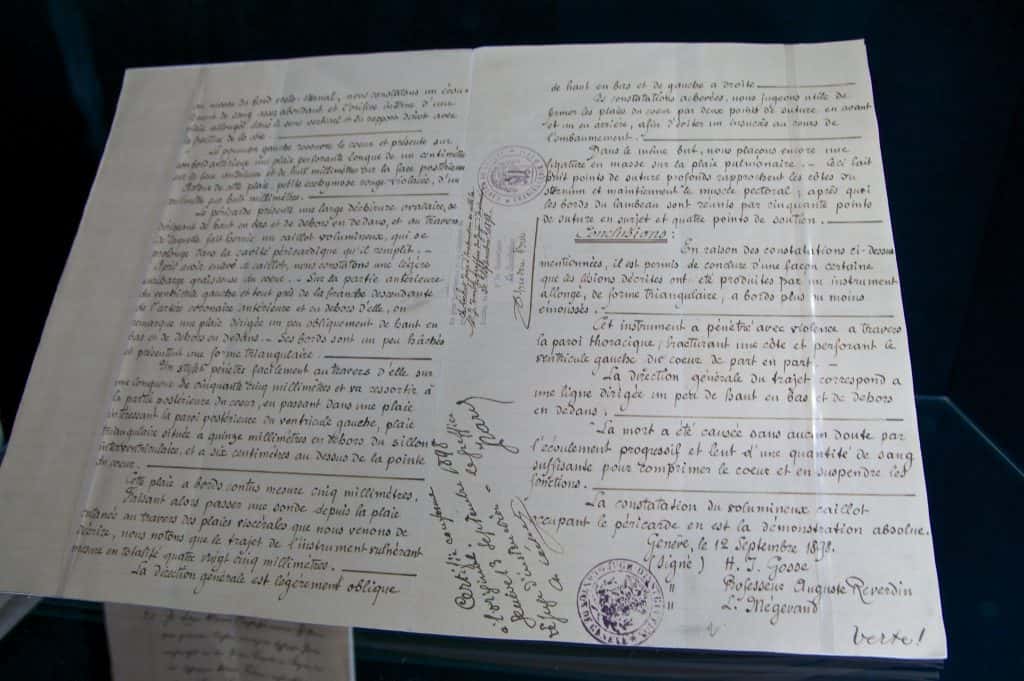 au niveau du fond rétro-sternal, nous constatons un écou-
lement de sang assez abondant et l'orifice interne d'une
plaie allongée dans le sens vertical et du rapport direct avec
la
Le poumon gauche recouvre le coeur et présente sur
son bord antérieur une plaie perforante longue de un centimètre
sur la face antérieure et de huit millimètres sur la face postérieure.
Autour de cette plaie, petite ecchymose rouge violacée, d'un
centimètre sur huit millimètres.
Le péricarde présente une large déchirure ovalaire, se
dirigeant de haut en bas et de dehors en dedans, et au travers
de laquelle fait hernie un caillot volumineux, qui se
prolonge dans la cavité péricardique qu'il remplit. —
Après avoir enlevé ce caillot, nous constatons une légère
surcharge graisseuse du coeur. — Sur la partie antérieure
du ventricule gauche et tout près de la branche descendante
de l'artère coronaire antérieure et en dehors d'elle, on
remarque une plaie dirigée un peu obliquement de haut en
bas et de dehors en dedans. — Ses bords sont un peu hâchés
et présentent une forme triangulaire.
Un stylet pénètre facilement au travers d'elle sur
une longueur de cinquante cinq millimètres et va ressortir à
la partie postérieure du coeur, en passant dans une plaie
intéressant la paroi postérieure du ventricule gauche, plaie
triangulaire située à quinze millimètres en dehors du sillon
interventriculaire, et à six centimètres au dessus de la pointe
du coeur.
Cette plaie à bords contus mesure cinq millimètres.
Faisant alors passer une sonde depuis la plaie
cutanée au travers des plaies viscérales que nous venons de
décrire, nous notons que le trajet de l'instrument vulnérant
mesure en totalité quatre vingt cinq millimètres.
La direction générale est légèrement oblique
Certifié conforme
à l'original.
Genève 13 septembre 1898
Le Juge d'instruction
Le Greffier
de haut en bas et de gauche à droite.
Ces constatations achevées, nous jugeons utile de
fermer les plaies du coeur par deux points de suture, en avant
et un en arrière, afin d'éviter un insuccès au cours de
l'embaumement.
Dans le même but, nous plaçons encore une
ligature en masse sur la plaie pulmonaire. — Ceci fait
huit points de suture profonds rapprochent les côtes du
sternum et maintiennent le muscle pectoral; après quoi
les bords du lambeau sont réunis par cinquante points
de suture en surjet et quatre points de soutien.
Conclusions :
En raison des constatations ci-dessus
mentionnées, il est permis de conclure d'une façon certaine
que les lésions décrites ont été produites par un instrument
allongé, de forme triangulaire, à bords plus ou moins
émoussés.
Cet instrument a pénétré avec violence à travers
la paroi thoracique, fracturant une côte et perforant le
ventricule gauche du coeur de part en part.
La direction générale du trajet correspond à
une ligne dirigée un peu de haut en bas et de dehors
en dedans.
La mort a été causée sans aucun doute par
l'écoulement progressif et lent d'une quantité de sang
suffisante pour comprimer le coeur et en suspendre les
fonctions.
La constatation du volumineux caillot
occupant le péricarde en est la démonstration absolue.
Genève, le 12 Septembre 1898.
(Signé) H. J. Gosse
" Professeur Auguste Reverdin
" L. Mégevand
Verte!